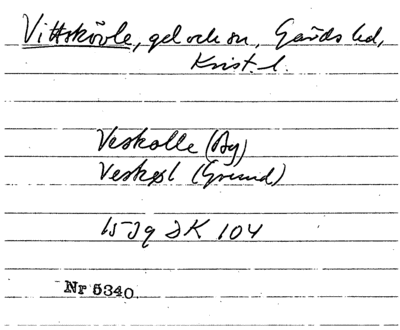 Vittskövle, gd och sn, Gärds hd,
Krist. l.
Veskolle (By)
Veskøl (Grund)
DK 104
Nr 5340